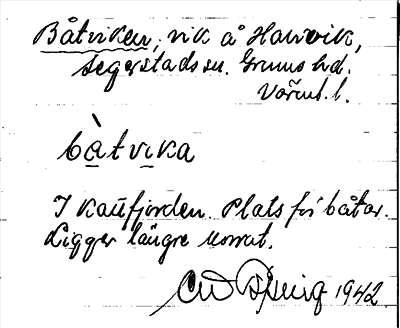 Båtviken, vik å Harvik,
Segerstads sn. Grums hd.
Värml. l.
bàtvika
I Kattfjorden. Plats för båtar.
Ligger längre norrut.
1942